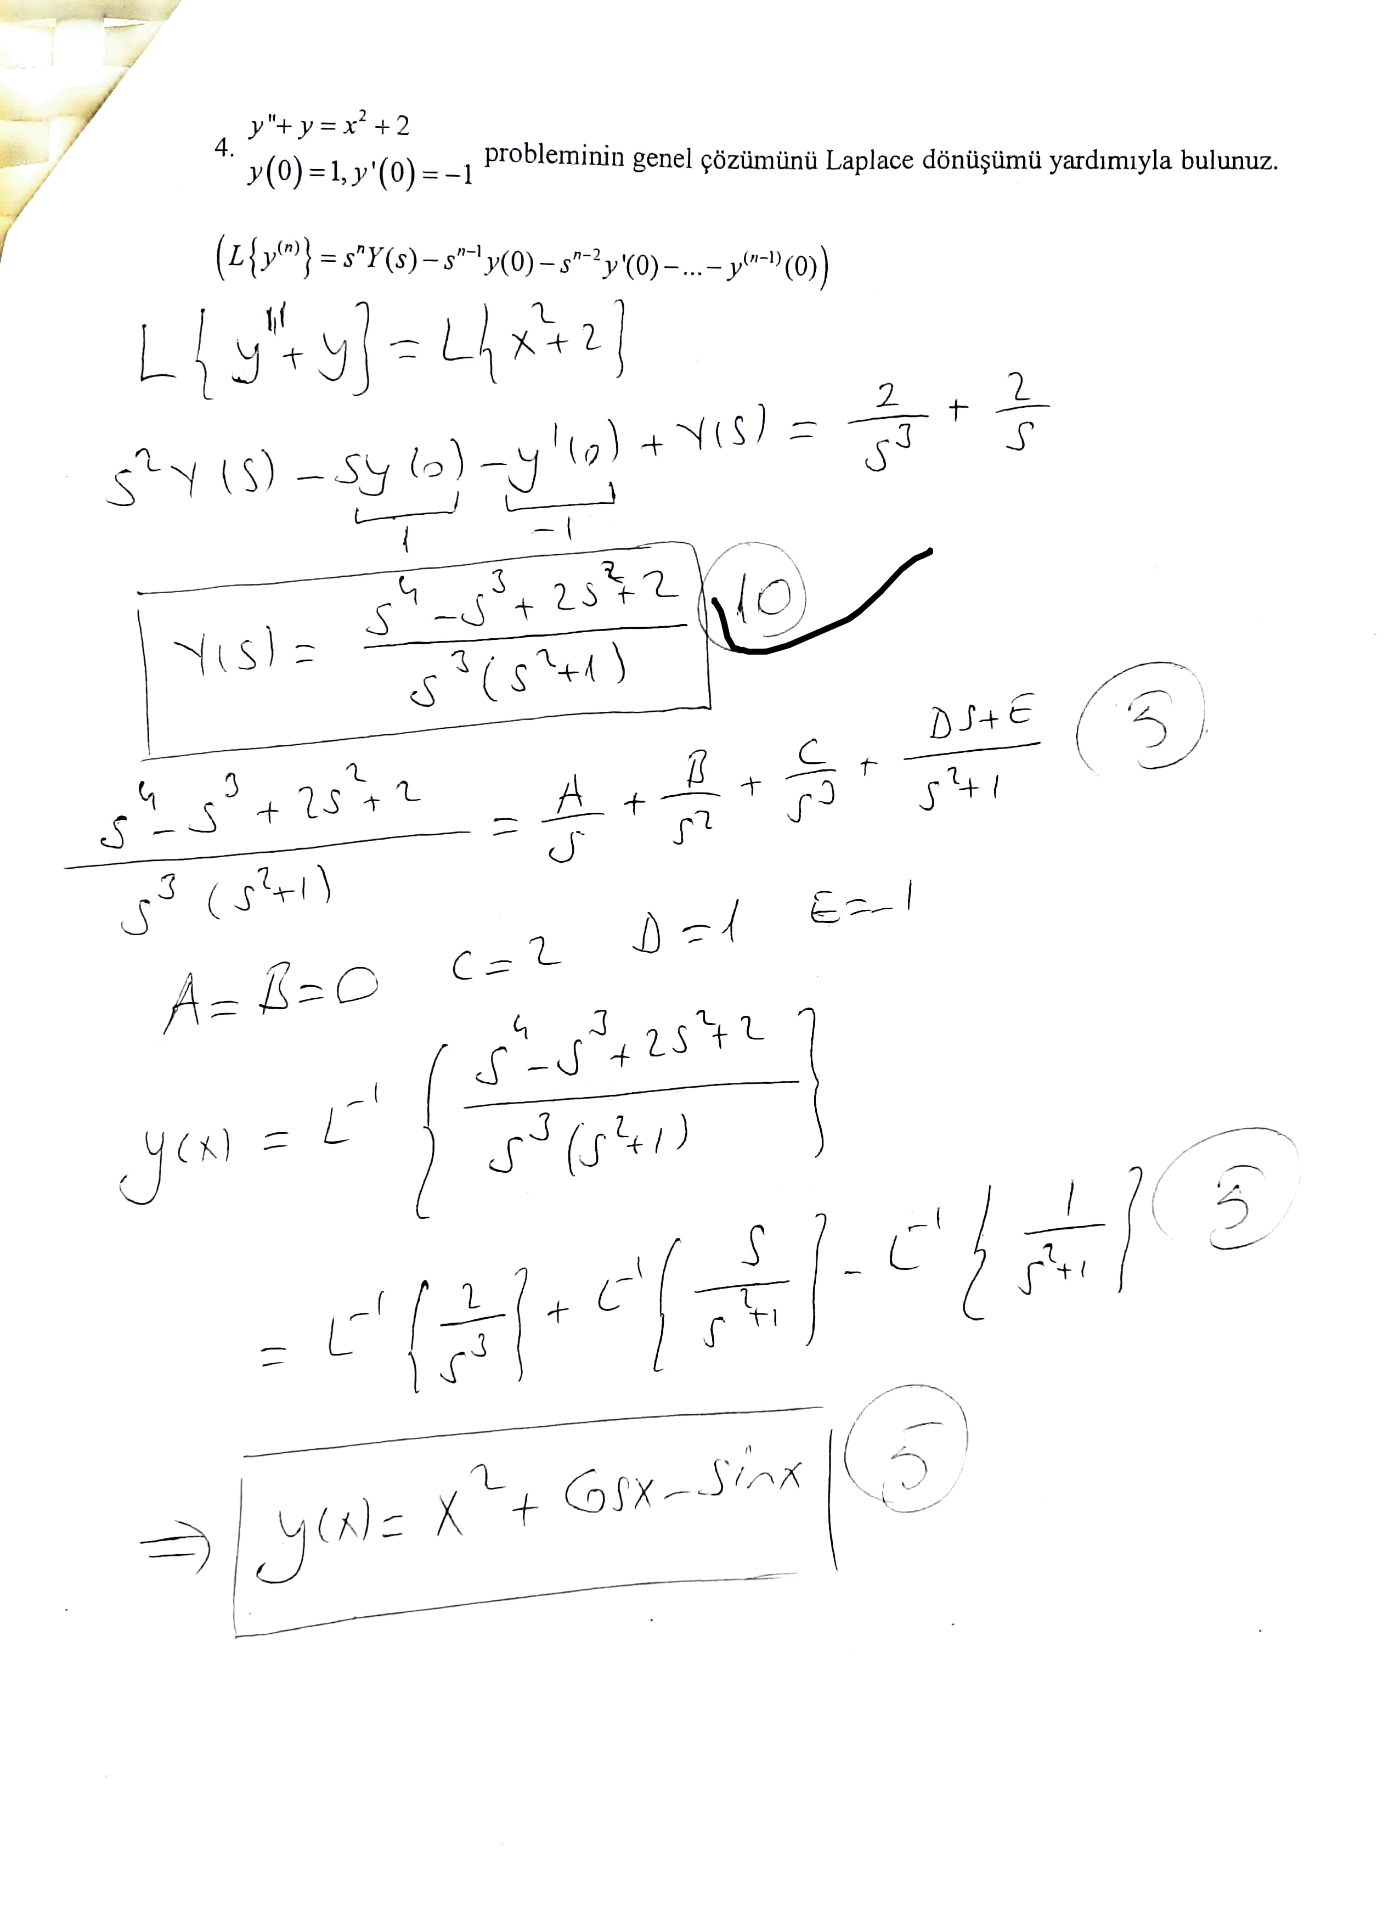 4. y"+ y = x² + 2
y(0) = 1, y'(0) = −1 probleminin genel çözümünü Laplace dönüşümü yardımıyla bulunuz.
(L{y⁽ⁿ⁾} = sⁿY(s) − sⁿ⁻¹y(0) − sⁿ⁻²y'(0) − ... − y⁽ⁿ⁻¹⁾(0))
L{y"+y} = L{x²+2}
s²Y(s) − sy(0) − y'(0) + Y(s) = 2/s³ + 2/s
1 −1
Y(s) = (s⁴ − s³ + 2s² + 2)/(s³(s²+1)) 10
(s⁴ − s³ + 2s² + 2)/(s³(s²+1)) = A/s + B/s² + C/s³ + (Ds+E)/(s²+1) 5
A = B = 0 C = 2 D = 1 E = −1
y(x) = L⁻¹{(s⁴ − s³ + 2s² + 2)/(s³(s²+1))}
= L⁻¹{2/s³} + L⁻¹{s/(s²+1)} − L⁻¹{1/(s²+1)} 5
⇒ y(x) = x² + Cosx − Sinx 5